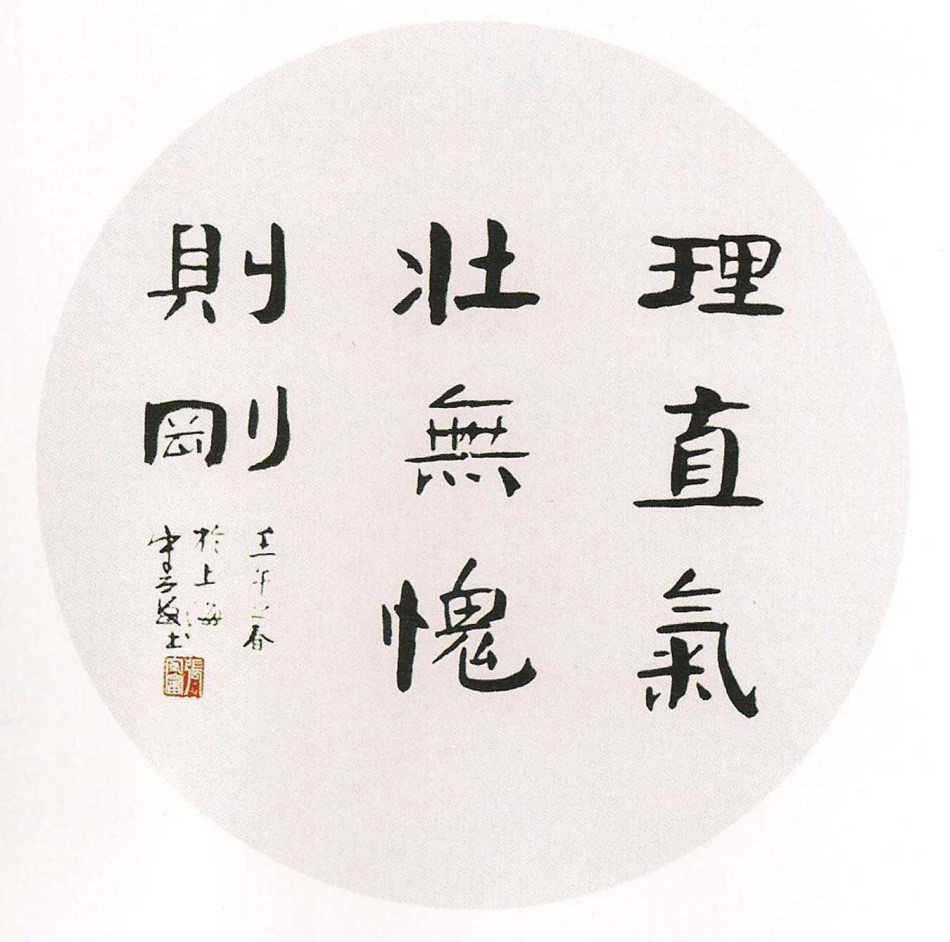 理直氣
壯無愧
則剛
壬午之春
於上海